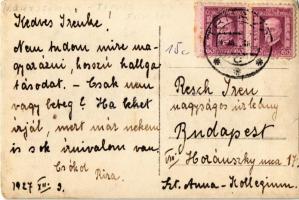 Kedves Irénke!
Nem tudom mire ma-
gyarázni, hosszú hallga-
tásodat. – Csak nem
vagy beteg? Ha lehet
írjál, mert már nekem
is sok írnivalóm van.
Csókol
Rira.
1927 VII. 9.
15c
Resch Iren
nagyságos úrleány
Budapest
VIII. Horánszky ucca 17.
Szt. Anna-Kollegium.